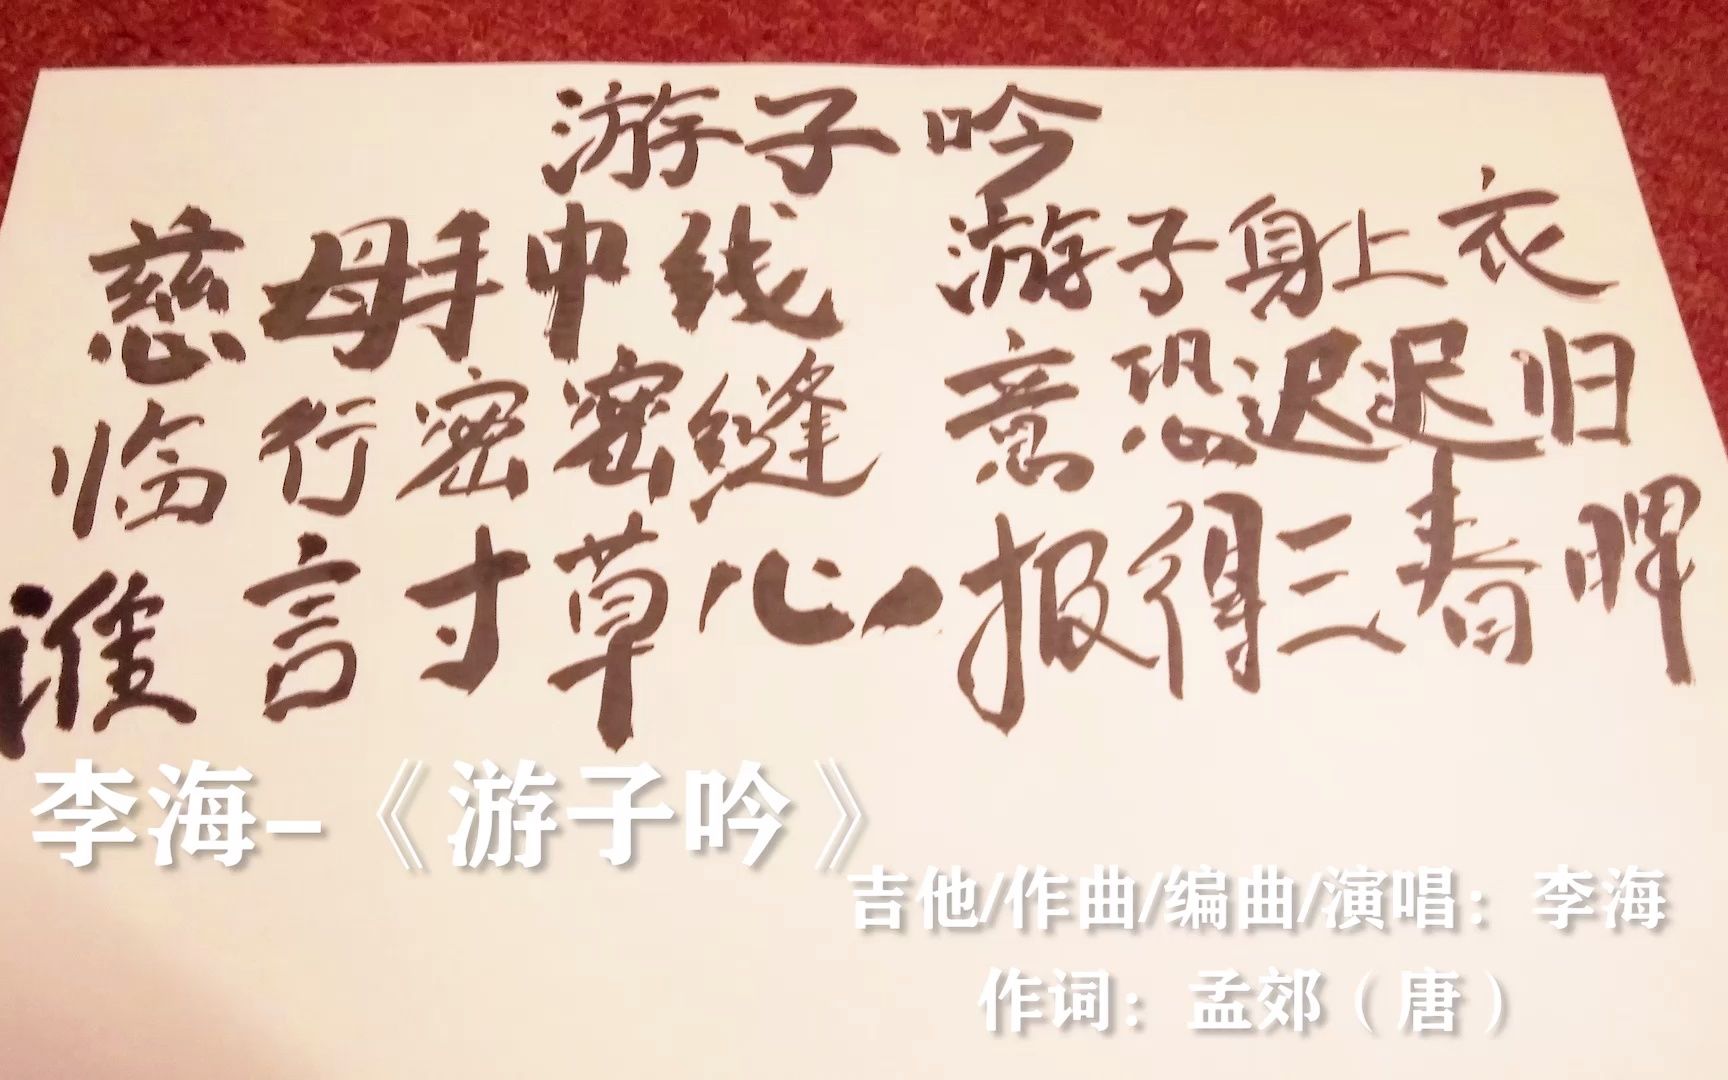 游子吟
慈母手中线 游子身上衣
临行密密缝 意恐迟迟归
谁言寸草心 报得三春晖
李海-《游子吟》
吉他/作曲/编曲/演唱：李海
作词：孟郊（唐）